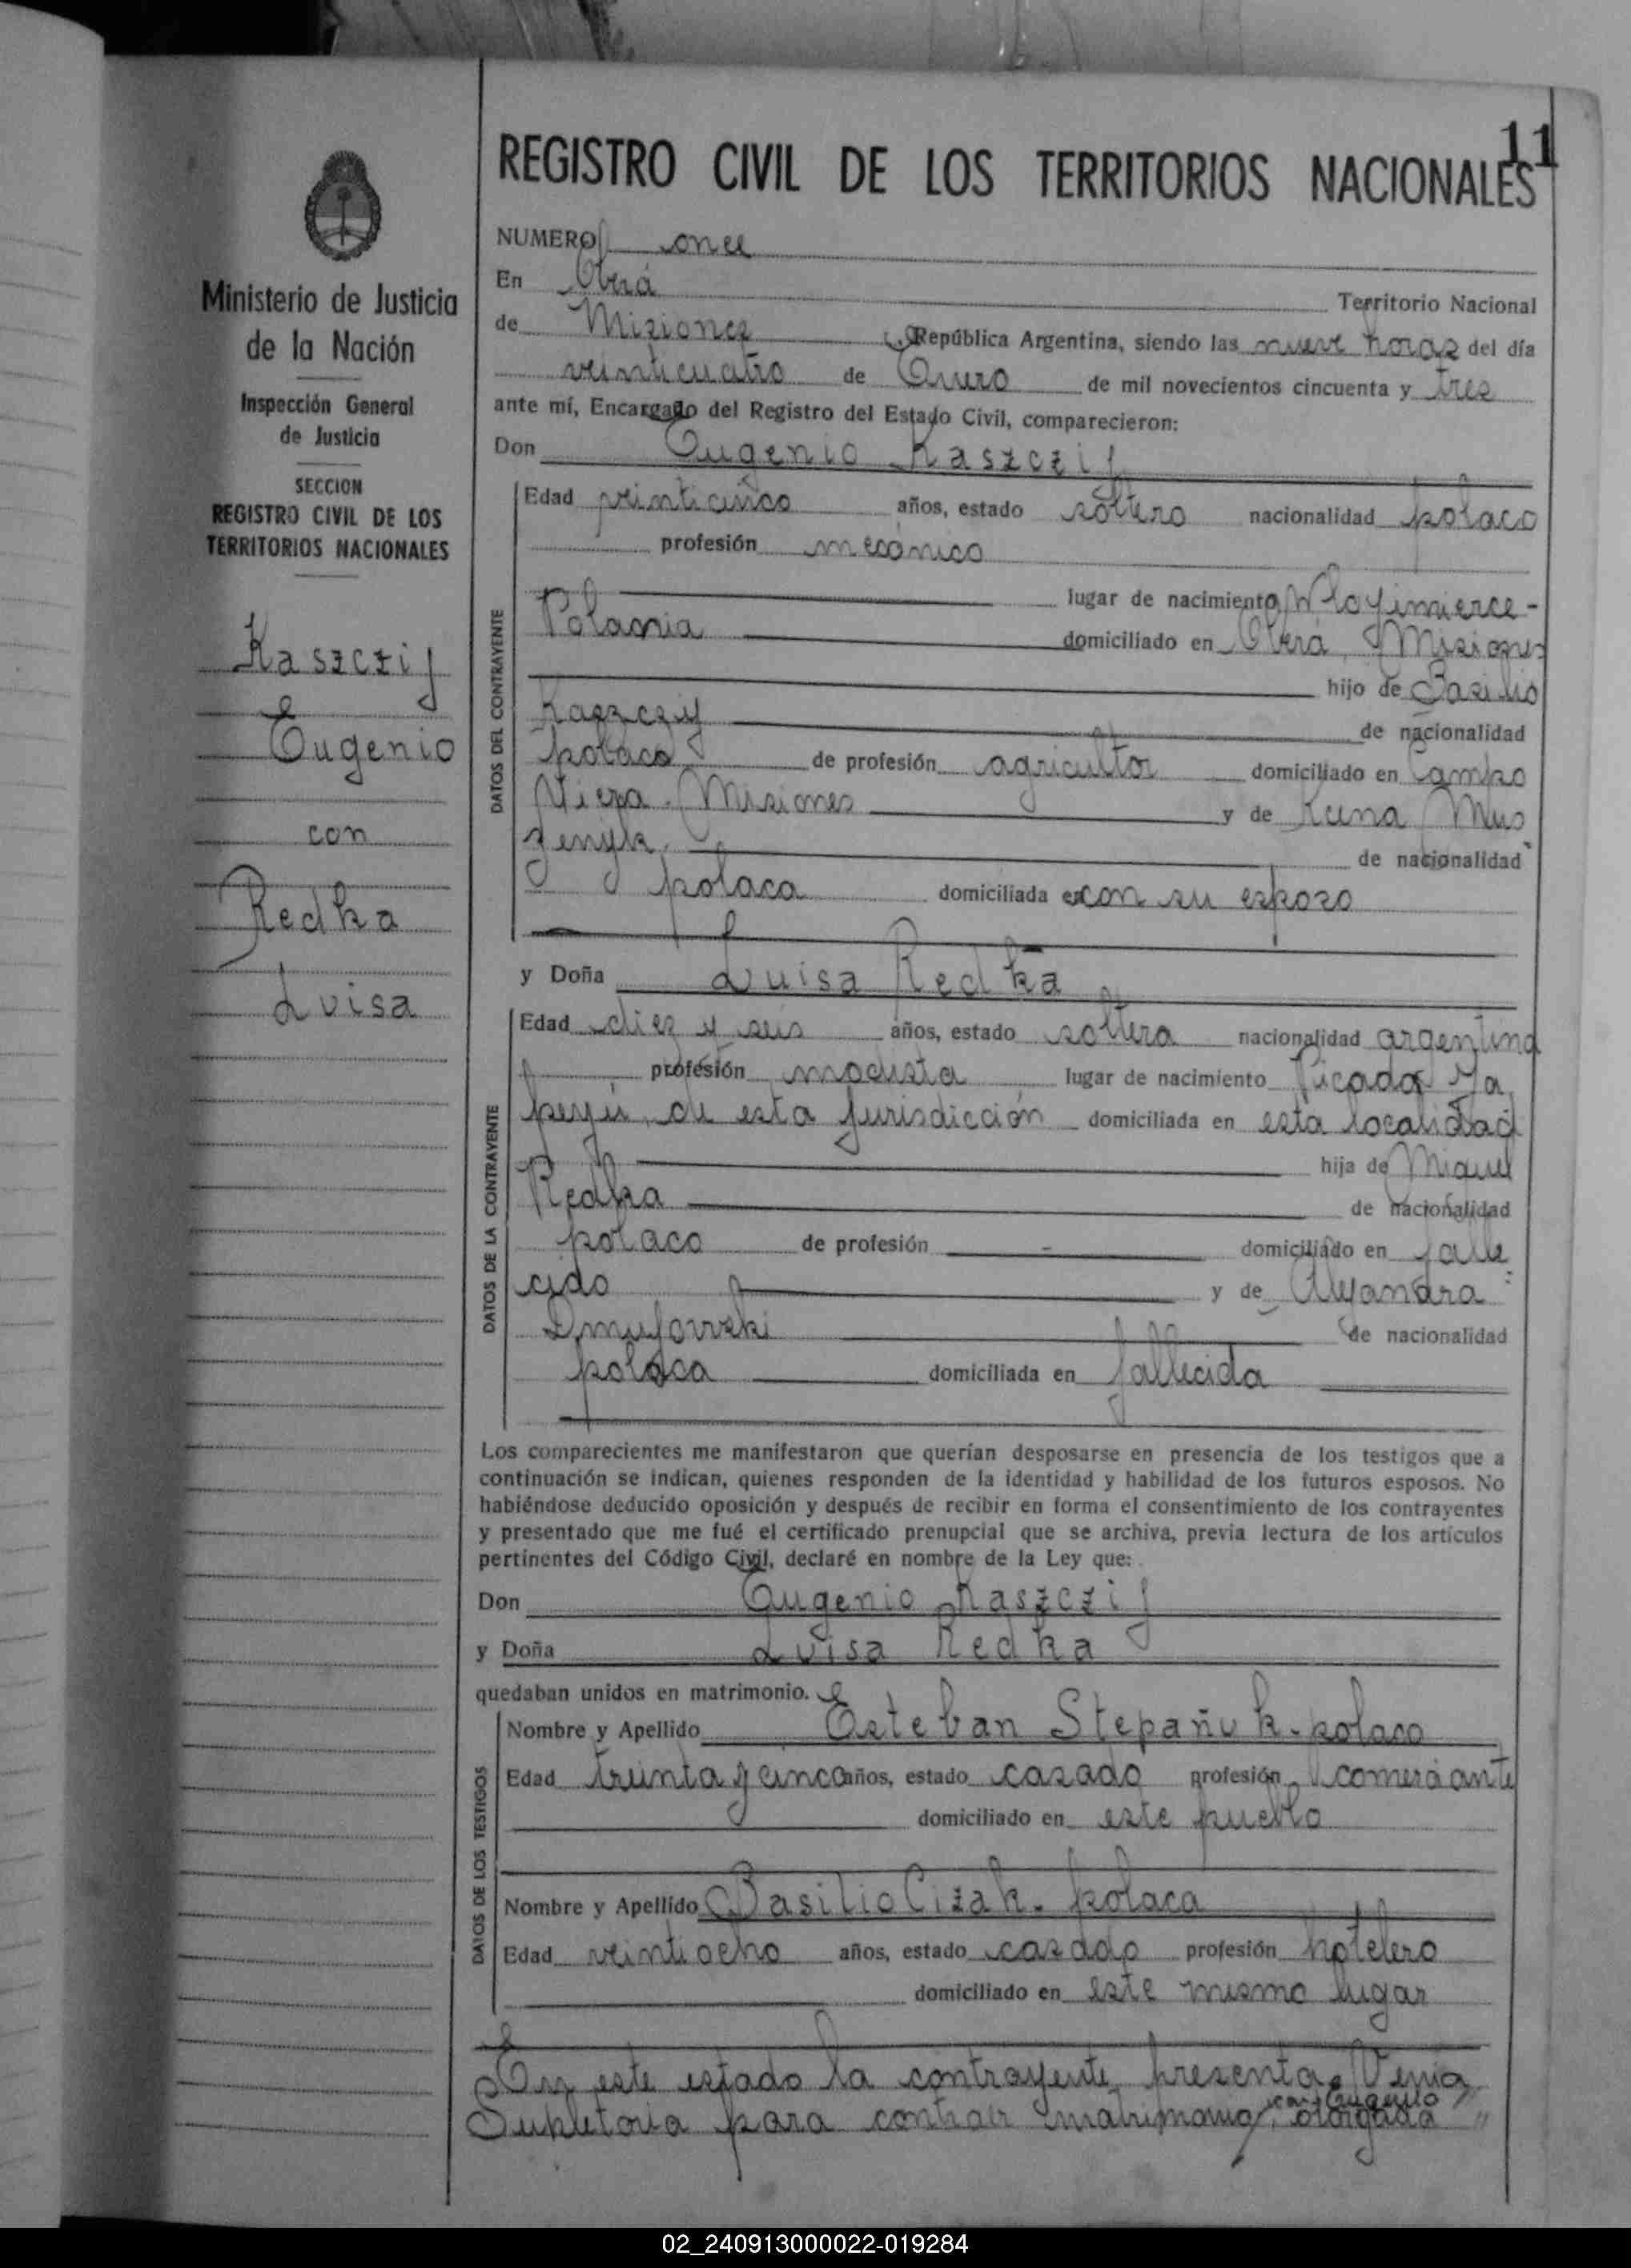 11
REGISTRO CIVIL DE LOS TERRITORIOS NACIONALES
Ministerio de Justicia
de la Nación
Inspección General
de Justicia
SECCION
REGISTRO CIVIL DE LOS
TERRITORIOS NACIONALES
Kaszczij
Eugenio
con
Redka
Luisa
NUMERO once
En Oberá Territorio Nacional
de Misiones República Argentina, siendo las nueve horas del día
veinticuatro de Enero de mil novecientos cincuenta y tres
ante mí, Encargado del Registro del Estado Civil, comparecieron:
Don Eugenio Kaszczij
DATOS DEL CONTRAYENTE
Edad veinticinco años, estado soltero nacionalidad polaco
profesión mecánico
lugar de nacimiento Wloyimierce-
Polania domiciliado en Oberá, Misiones
hijo de Basilio
Kaszczy de nacionalidad
polaco de profesión agricultor domiciliado en Campo
Viera. Misiones y de Mus
zenyk. de nacionalidad
polaca domiciliada en con su esposo
y Doña Luisa Redka
DATOS DE LA CONTRAYENTE
Edad diez y seis años, estado soltera nacionalidad argentina
profesión modista lugar de nacimiento Picada Ya
peyú, de esta jurisdicción domiciliada en esta localidad
hija de Miguel
Redka de nacionalidad
polaco de profesión - domiciliado en falle
cido y de Alejandra
de nacionalidad
polaca domiciliada en fallecida
Los comparecientes me manifestaron que querían desposarse en presencia de los testigos que a
continuación se indican, quienes responden de la identidad y habilidad de los futuros esposos. No
habiéndose deducido oposición y después de recibir en forma el consentimiento de los contrayentes
y presentado que me fué el certificado prenupcial que se archiva, previa lectura de los artículos
pertinentes del Código Civil, declaré en nombre de la Ley que:
Don Eugenio Kaszczij
y Doña Luisa Redka
quedaban unidos en matrimonio.
DATOS DE LOS TESTIGOS
Nombre y Apellido Esteban Stepañuk-polaco
Edad treinta y cinco años, estado casado profesión comerciante
domiciliado en este pueblo
Nombre y Apellido Basilio Cizak. polaca
Edad veintiocho años, estado casado profesión hotelero
domiciliado en este mismo lugar
En este estado la contrayente presenta Venia
con Eugenio
Supletoria para contraer matrimonio, otorgada
02_240913000022-019284